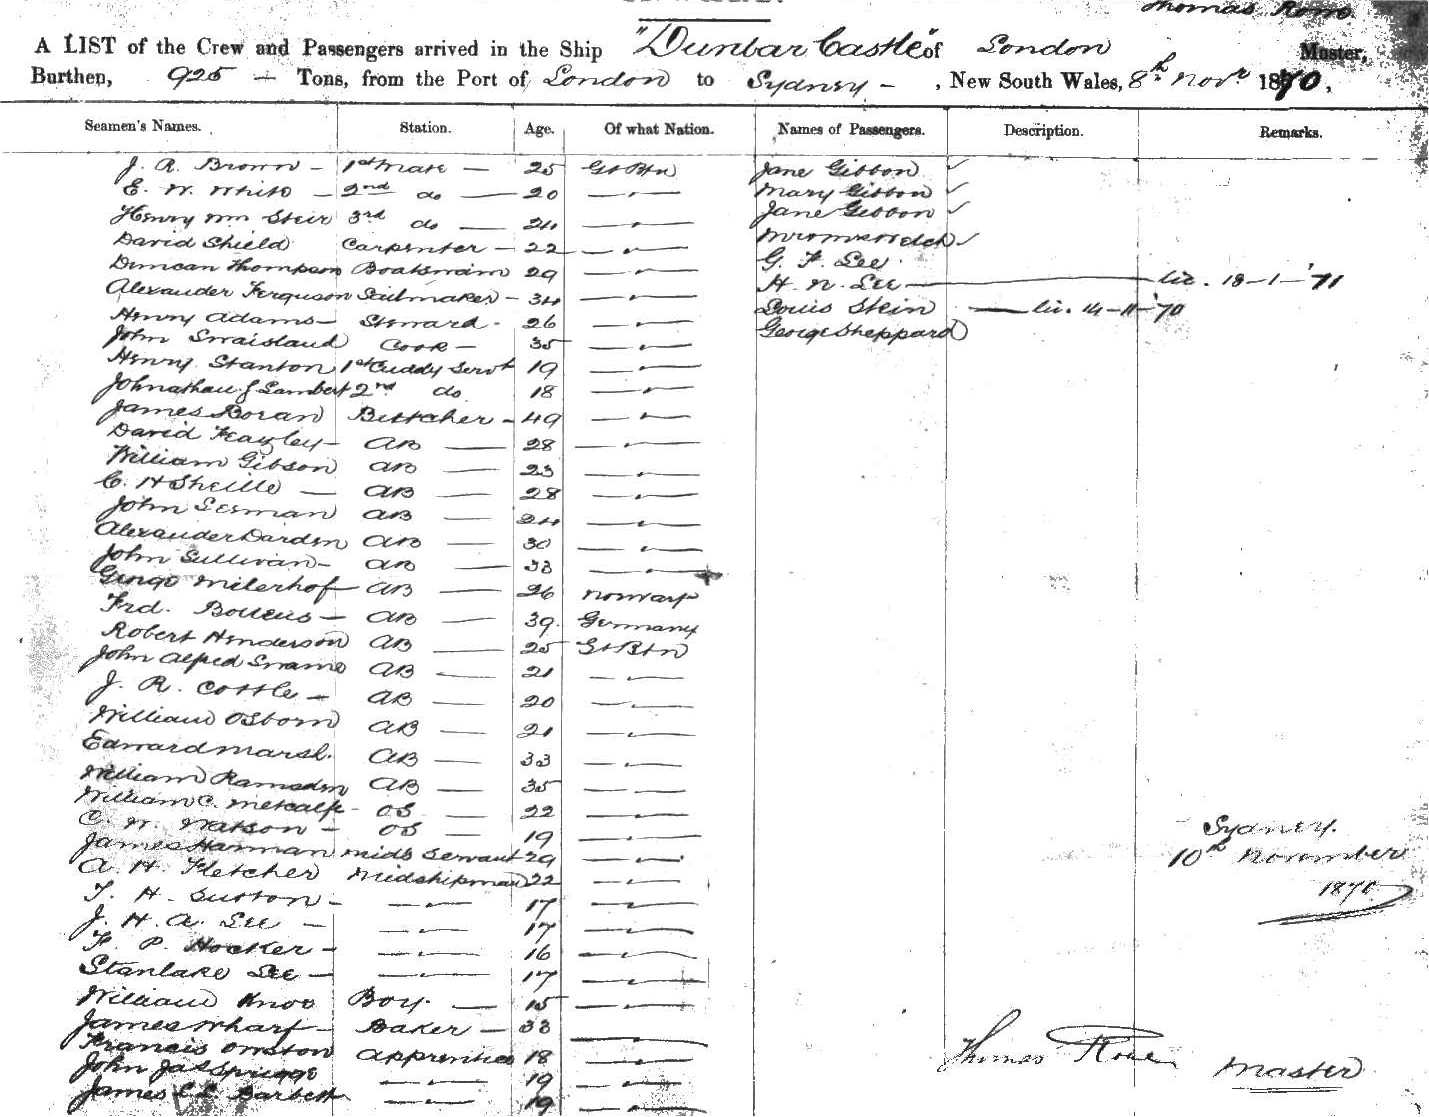 Thomas Rowe
A LIST of the Crew and Passengers arrived in the Ship "Dunbar Castle" of London Master,
Burthen, 925 — Tons, from the Port of London to Sydney — , New South Wales, 8th Novr 1870,
Seamen's Names. Station. Age. Of what Nation. Names of Passengers. Description. Remarks.
J. R. Brown — 1st Mate — 25 Gt Btn Jane Gibbon ✓
E. W. White — 2nd do — 20 — " — Mary Gibbon ✓
Henry Wm Steir 3rd do — 24 — " — Jane Gibbon ✓
David Shield Carpenter — 22 — " — ✓
Duncan Thompson Boatswain 29 — " — G. F. Lee
Alexander Ferguson Sailmaker — 34 — " — H. N. Lee — lic. 18-1-'71
Henry Adams — Steward 26 — " — Louis Stein — lic. 14-11-'70
John Swaisland Cook — 35 — " — George Sheppard
Henry Stanton 1st Cuddy Servt 19 — " —
Johnathan J Lambert 2nd do 18 — " —
James Boran Buttcher — 49 — " —
David Feazley — AB — 28 — " —
William Gibson AB — 23 — " —
C. H Sheille — AB — 28 — " —
John Serman AB — 24 — " —
Alexander Darden AB — 30 — " —
John Sullivan — AB — 33 — " —
Milerhof AB — 26 Norway
Frd. — AB — 39 Germany
Robert Henderson AB — 25 Gt Btn
John Alfred AB — 21 — " —
J. R. Cottle — AB — 20 — " —
William Osborn AB — 21 — " —
Edward Marsh. AB — 33 — " —
William Ramsden AB — 35 — " —
William C. Metcalfe — OS — 22 — " —
C. W. Watson — OS — 19 — " — Sydney.
James Harman Mids Servant 29 — " — 10th November
A. H. Fletcher Midshipman 22 — " — 1870
T. H. Sutton — — " — 17 — " —
J. H. A. Lee — — " — 17 — " —
F. P. Hocker — — " — 16 — " —
Stanlake Lee — — " — 17 — " —
William Knox Boy — 15 — " —
James Wharf — Baker — 33 — " —
Francis Omston Apprentice 18 — " — Thomas Rowe Master
John Jas Spriggs — " — 19 — " —
James L. L. Barbett — " — 19 — " —